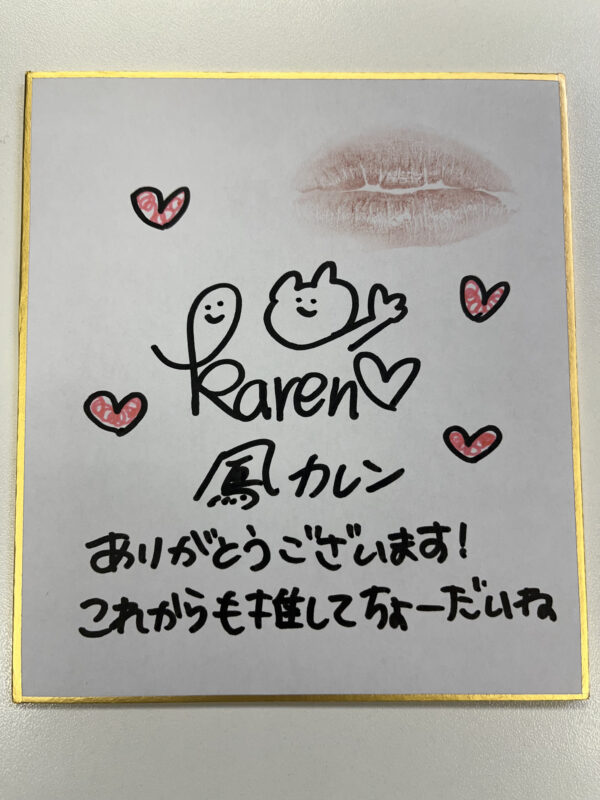 Karen
鳳カレン
ありがとうございます!
これからも推してちょーだいね